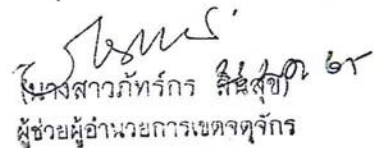 (นางสาวภัทร์กร สินสุข)
ผู้ช่วยผู้อำนวยการเขตจตุจักร